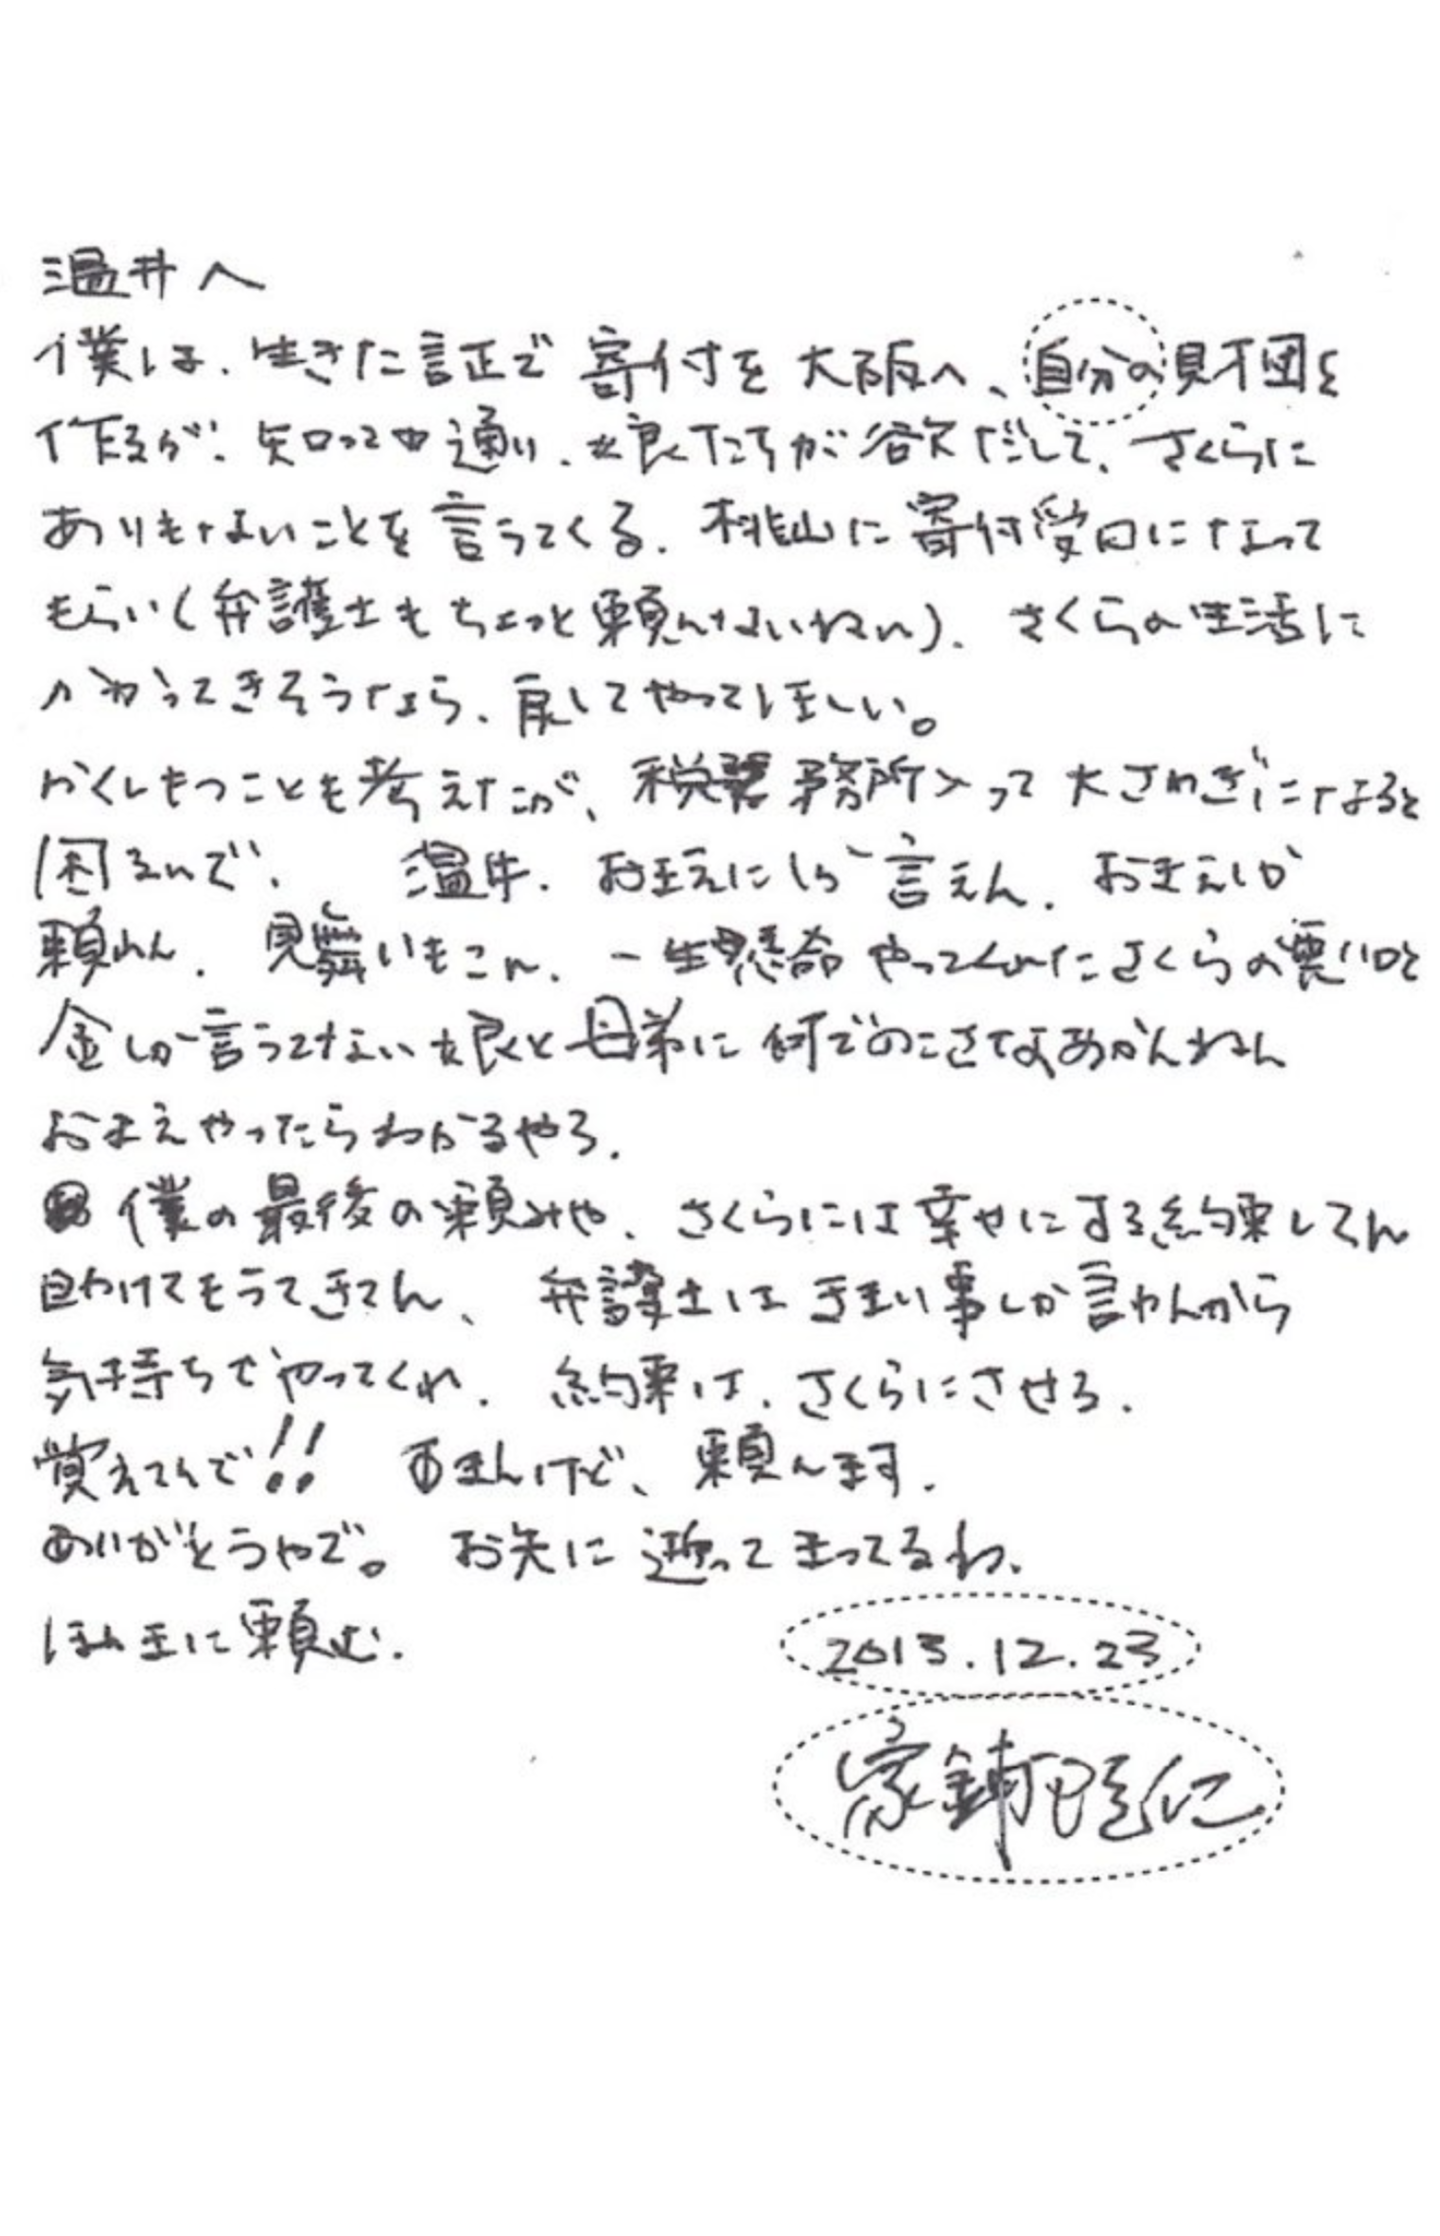 温井へ
僕は、生きた証で寄付を大阪へ、自分の財団を
作るが、知っての通り、娘たちが欲だして、さくらに
ありもないことを言うてくる。桃山に寄付受口になって
もらい(弁護士もちょっと頼んないねん)、さくらの生活に
かわってきそうなら、戻してやってほしい。
かくしもつことも考えたが、税務所入って大さわぎになると
困るんで、温井、おまえにしか言えん、おまえしか
頼めん。見舞いもこん、一生懸命やってくれたさくらの悪い口と
金しか言うてない娘と母弟に何でのこさなあかんねん
おまえやったらわかるやろ。
僕の最後の頼みや、さくらには幸せにする約束してん
助けてもうてきてん、弁護士は事しか言わんから
気持ちでやってくれ。約束は、さくらにさせる。
覚えてんで!! すまんけど、頼んます。
ありがとうやで。お先に逝ってまってるわ。
ほんまに頼む。
2013.12.23
家鋪隆仁